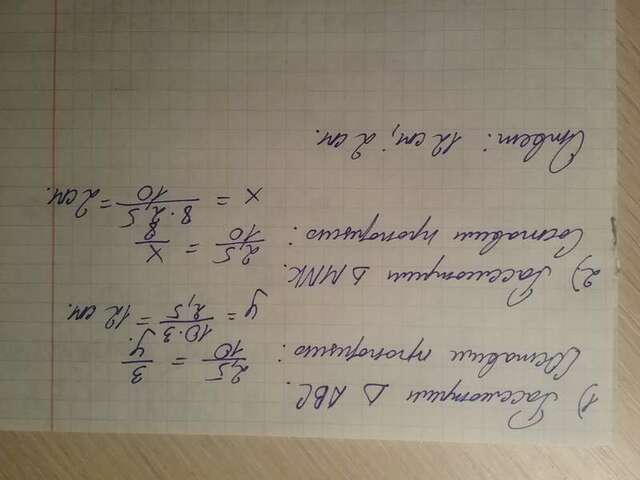 1) Рассмотрим Δ ABC.
Составим пропорцию: 2,5/10 = 3/y
y = 10·3/2,5 = 12 см.
2) Рассмотрим Δ MNK.
Составим пропорцию: 2,5/10 = x/8
x = 8·2,5/10 = 2 см.
Ответ: 12 см; 2 см.